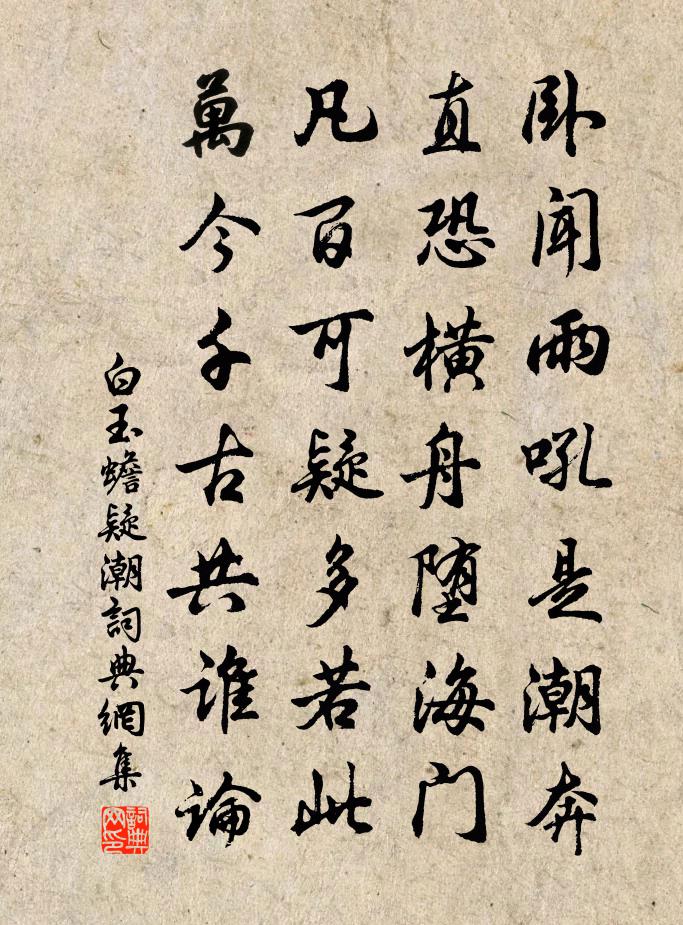 卧聞雨吼是潮奔
直恐橫舟堕海门
凡百可疑多若此
萬今千古共誰論
白玉蟾疑潮詞典網集
詞典网印